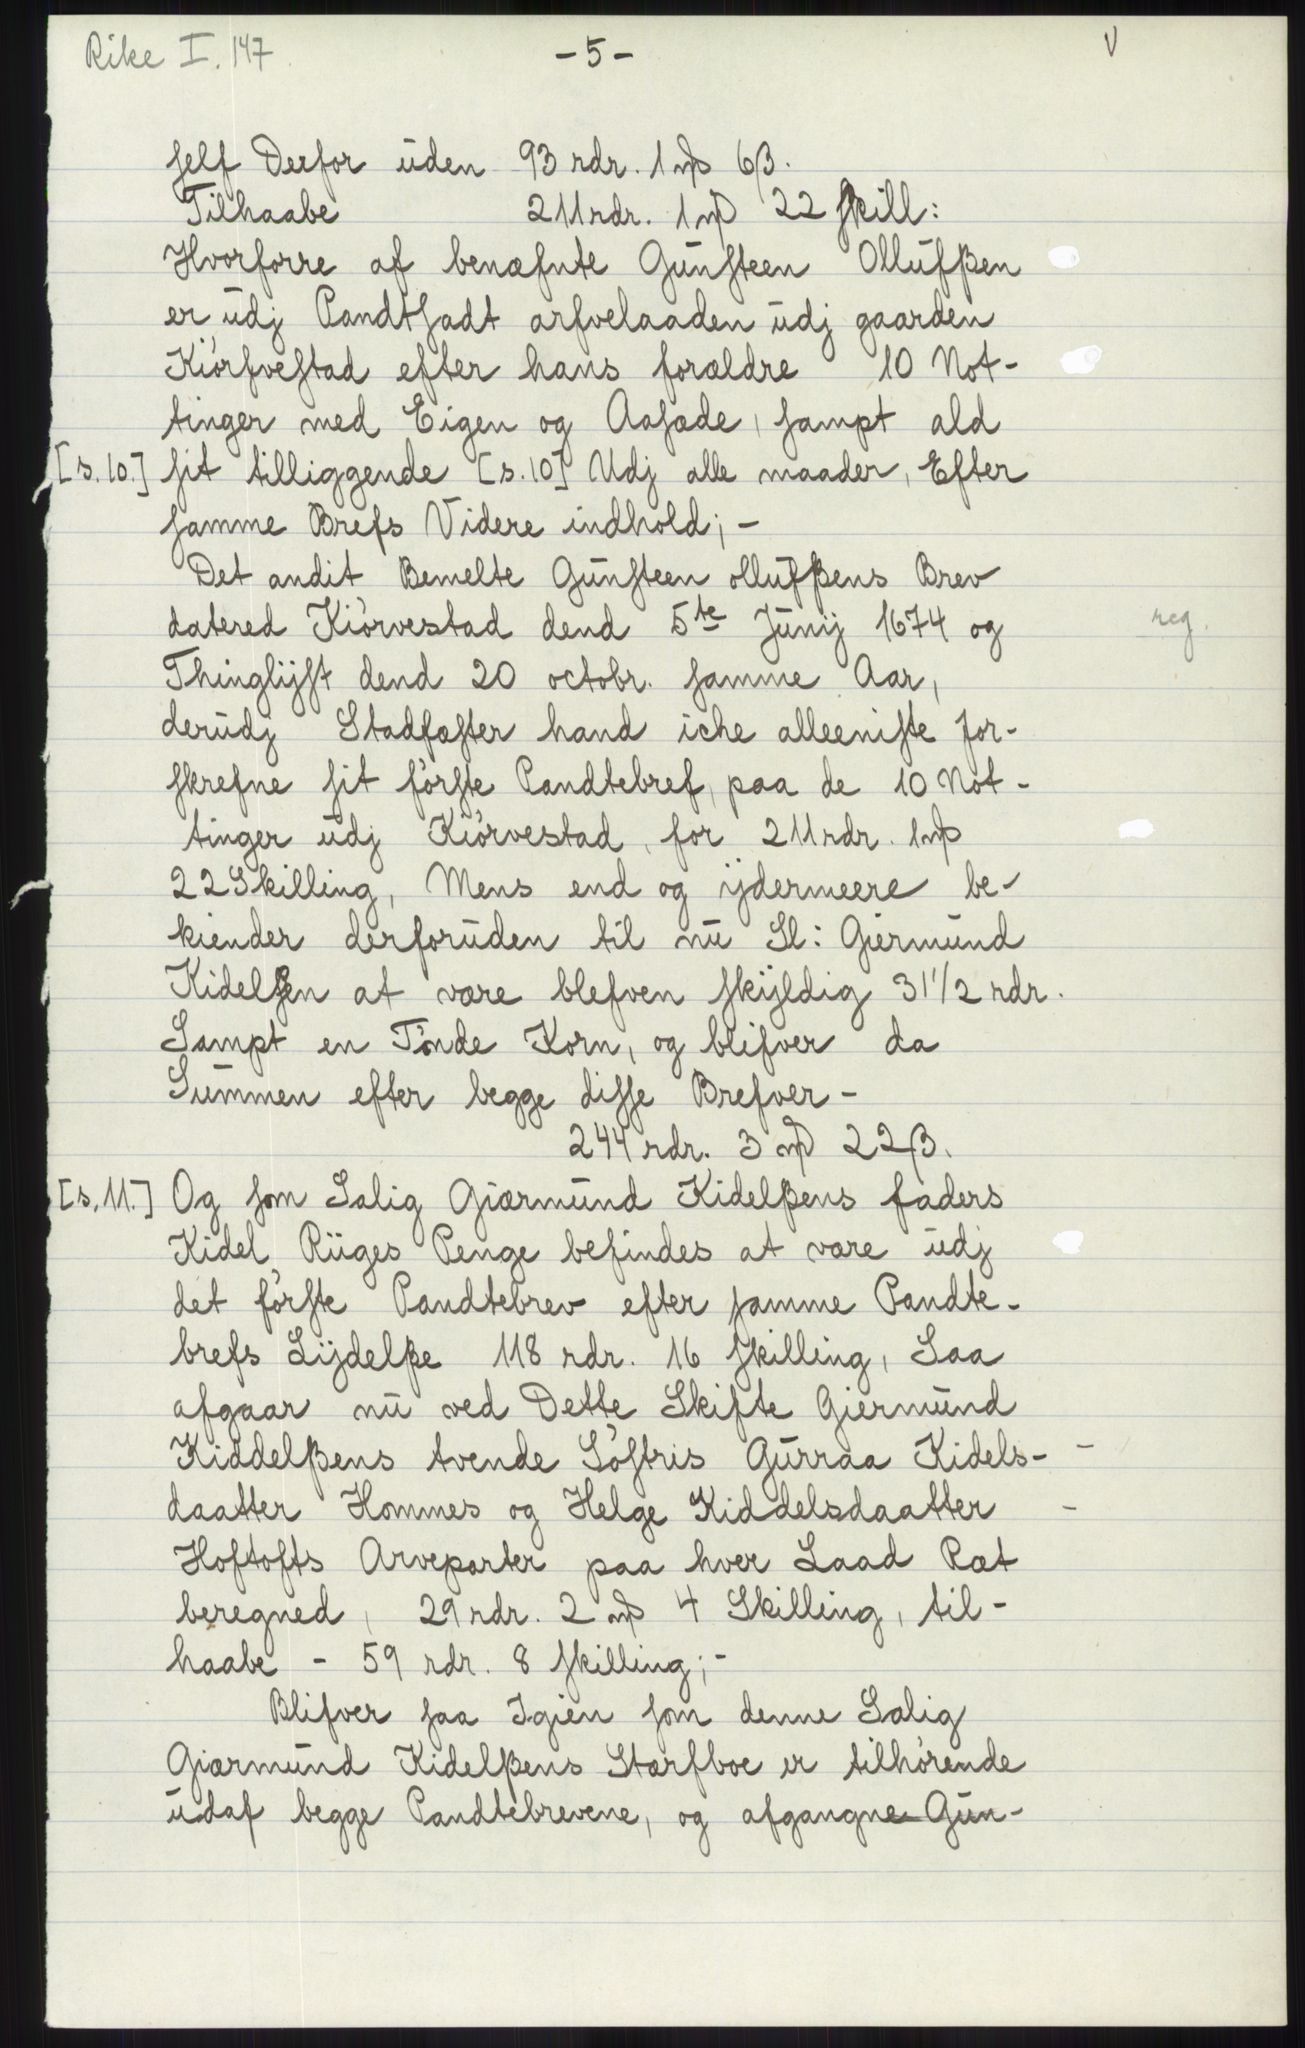 Rike I. 147. -5- V
self Derfor uden 93 rdr. 1 mꝸ 6 β.
Tilhaabe 211 rdr. 1 mꝸ 22 skill:
Hvorforre af benæfnte Gunsteen Ollufßen
er udj Pandtsadt arfvelaaden udj gaarden
Kiörfvestad efter hans forældre 10 Not-
tinger med Eigen og Aasæde, sampt ald
[s. 10.] sit tilliggende [s. 10] Udj alle maader, Efter
samme Brefs Videre indhold; -
Det andit Bemelte Gunsteen ollufßens Brev
datered Kiörvestad dend 5te Junij 1674 og reg.
Thinglijst dend 20 octobr. samme Aar,
derudj Stadfæster hand iche alleeniste for-
skrefne sit förste Pandtebref, paa de 10 Not-
tinger udj Kiörvestad, for 211 rdr. 1 mꝸ
22 Skilling, Mens end og ijdermeere be-
kiender derforuden til nu Sl: Giermund
Kidelßen at være blefven skijldig 31 1/2 rdr.
Sampt en Tönde Korn, og blifver da
Summen efter begge disse Brefver -
244 rdr. 3 mꝸ 22 β.
[s. 11.] Og som Salig Giærmund Kidelßens faders
Kidel Riiges Penge befindes at være udj
det förste Pandtebrev efter samme Pandte-
brefs Lijdelße 118 rdr. 16 skilling, Saa
afgaar nu ved Dette Skifte Giermund
Kiddelßens tvende Söstris Gurraa Kidels- -
daatter Hommes og Helge Kiddelsdaatter -
Hoftofts Arveparter paa hver Laad Ræt
beregned, 29 rdr. 2 mꝸ 4 Skilling, til-
haabe - 59 rdr. 8 skilling; -
Blifver saa Igien som denne Salig
Giærmund Kidelßens Stærfboe er tilhörende
udaf begge Pandtebrevene, og afgangne Gun-